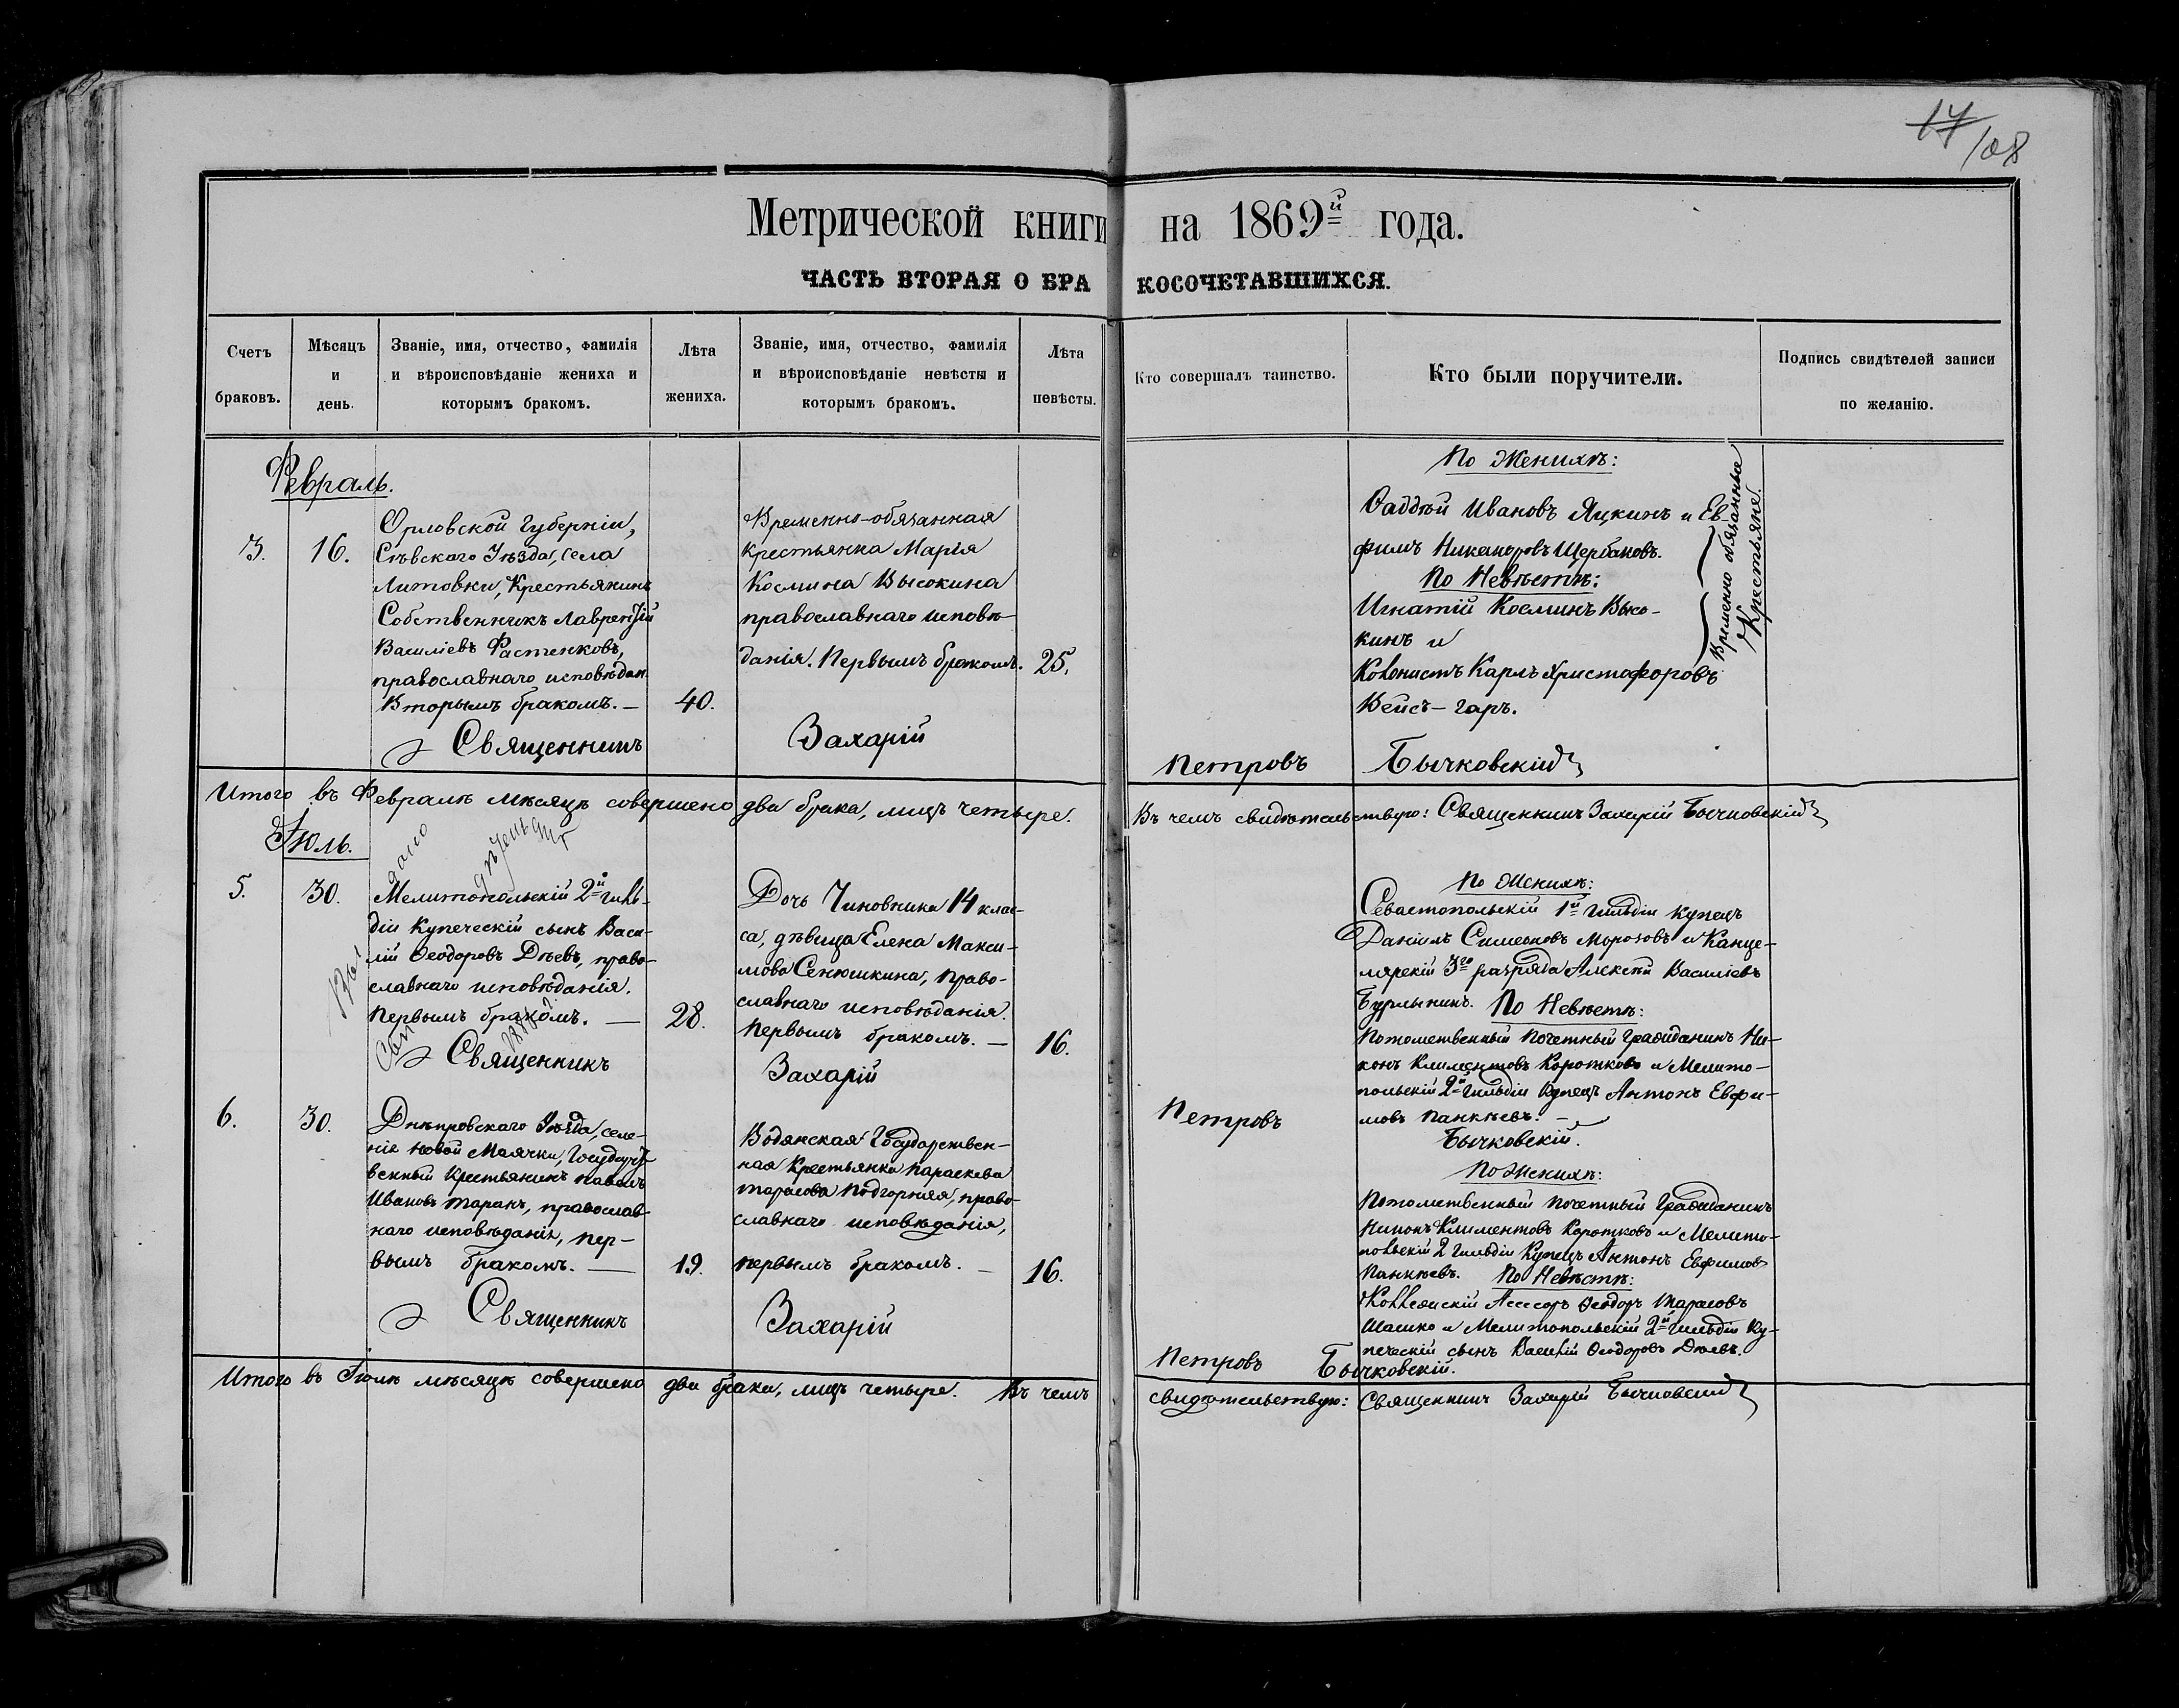 17
108
Метрической книги на 1869й года.
ЧАСТЬ ВТОРАЯ О БРАКОСОЧЕТАВШИХСЯ.
Счетъ браковъ.
Мѣсяцъ и день.
Званіе, имя, отчество, фамилія и вѣроисповѣданіе жениха и которымъ бракомъ.
Лѣта жениха.
Званіе, имя, отчество, фамилія и вѣроисповѣданіе невѣсты и которымъ бракомъ.
Лѣта невѣсты.
Кто совершалъ таинство.
Кто были поручители.
Подпись свидѣтелей записи по желанію.
Февраль.
3.
16.
Орловской Губерніи,
Сѣвскаго Уѣзда, села
Литовки, Крестьянинъ
Собственникъ Лаврентій
Василіевъ Фастенковъ,
православнаго исповѣдан.
Вторымъ бракомъ. —
40.
Временно-обязанная
крестьянка Марія
Космина Высокина
православнаго исповѣ-
данія. Первымъ бракомъ.
25.
По Женихѣ:
Ѳаддѣй Ивановъ Яцкинъ и Ев-
фимъ Никаноровъ Щербаковъ.
По Невѣстѣ:
Игнатій Косминъ Высо-
кинъ и
Временно обязанные
Крестьяне.
Колонистъ Карлъ Христофоровъ
Вейсъ-гаръ.
Священникъ Захарій Петровъ Бычковскій
Итого въ Февралѣ мѣсяцѣ совершено два брака, лицъ четыре. Въ чемъ свидѣтельствую: Священникъ Захарій Бычковскій
Іюль.
5.
30.
Мелитопольскій 2й гиль-
діи Купеческій сынъ Васи-
лій Ѳеодоровъ Дѣевъ, право-
славнаго исповѣданія.
Первымъ бракомъ. —
28.
Дочь Чиновника 14 клас-
са, дѣвица Елена Макси-
мова Сенюшкина, право-
славнаго исповѣданія.
Первымъ бракомъ. —
16.
По Женихѣ:
Севастопольскій 1й Гильдіи купецъ
Даніилъ Симеоновъ Морозовъ и Канце-
лярскій 3го разряда Алексѣй Василіевъ
Бурлыкинъ. По Невѣстѣ:
Потомственный Почетный Гражданинъ Ни-
конъ Климентовъ Коротковъ и Мелито-
польскій 2й Гильдіи Купецъ Антонъ Евфи-
мовъ Панкѣевъ. —
Священникъ Захарій Петровъ Бычковскій.
6.
30.
Днѣпровскаго Уѣзда, селе-
ніе Новой Маячки, Государст-
венный Крестьянинъ Павелъ
Ивановъ Таранъ, православ-
наго исповѣданія, пер-
вымъ бракомъ. —
19.
Водянская Государствен-
ная Крестьянка Параскева
Тарасова Подгорняя, право-
славнаго исповѣданія,
первымъ бракомъ. —
16.
По Женихѣ:
Потомственный Почетный Гражданинъ
Никонъ Климентовъ Коротковъ и Мелито-
польскій 2 Гильдіи Купецъ Антонъ Евфимовъ
Панкѣевъ. По Невѣстѣ:
Коллежскій Асессоръ Ѳеодоръ Тарасовъ
и Мелитопольскій 2й Гильдіи Ку-
печескій сынъ Василій Ѳеодоровъ Дѣевъ.
Священникъ Захарій Петровъ Бычковскій.
Итого въ Іюлѣ мѣсяцѣ совершено два брака, лицъ четыре. Въ чемъ свидѣтельствую: Священникъ Захарій Бычковскій